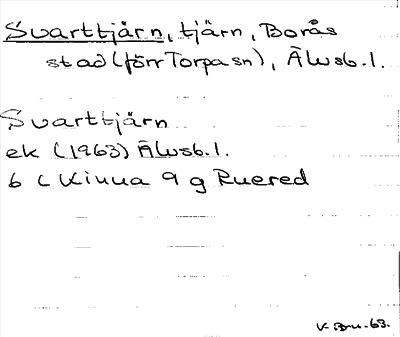 Svarttjärn, tjärn, Borås
stad (förr Torpa sn), Älvsb. l.
Svarttjärn
ek (1963) Älvsb. l.
6 C Kinna 9 g Ruered
V. Bru. 63.